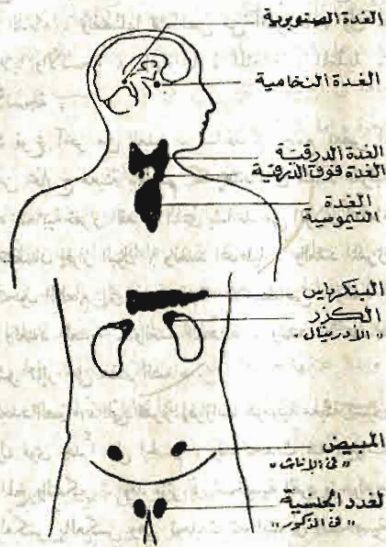 الغدة الصنوبرية
الغدة النخامية
الغدة الدرقية
الغدة فوق الدرقية
الغدة
التيموسية
البنكرياس
الكزر
"الأدرينال"
المبيض
"في الإناث"
لغدد الجنسية
"في الذكور"